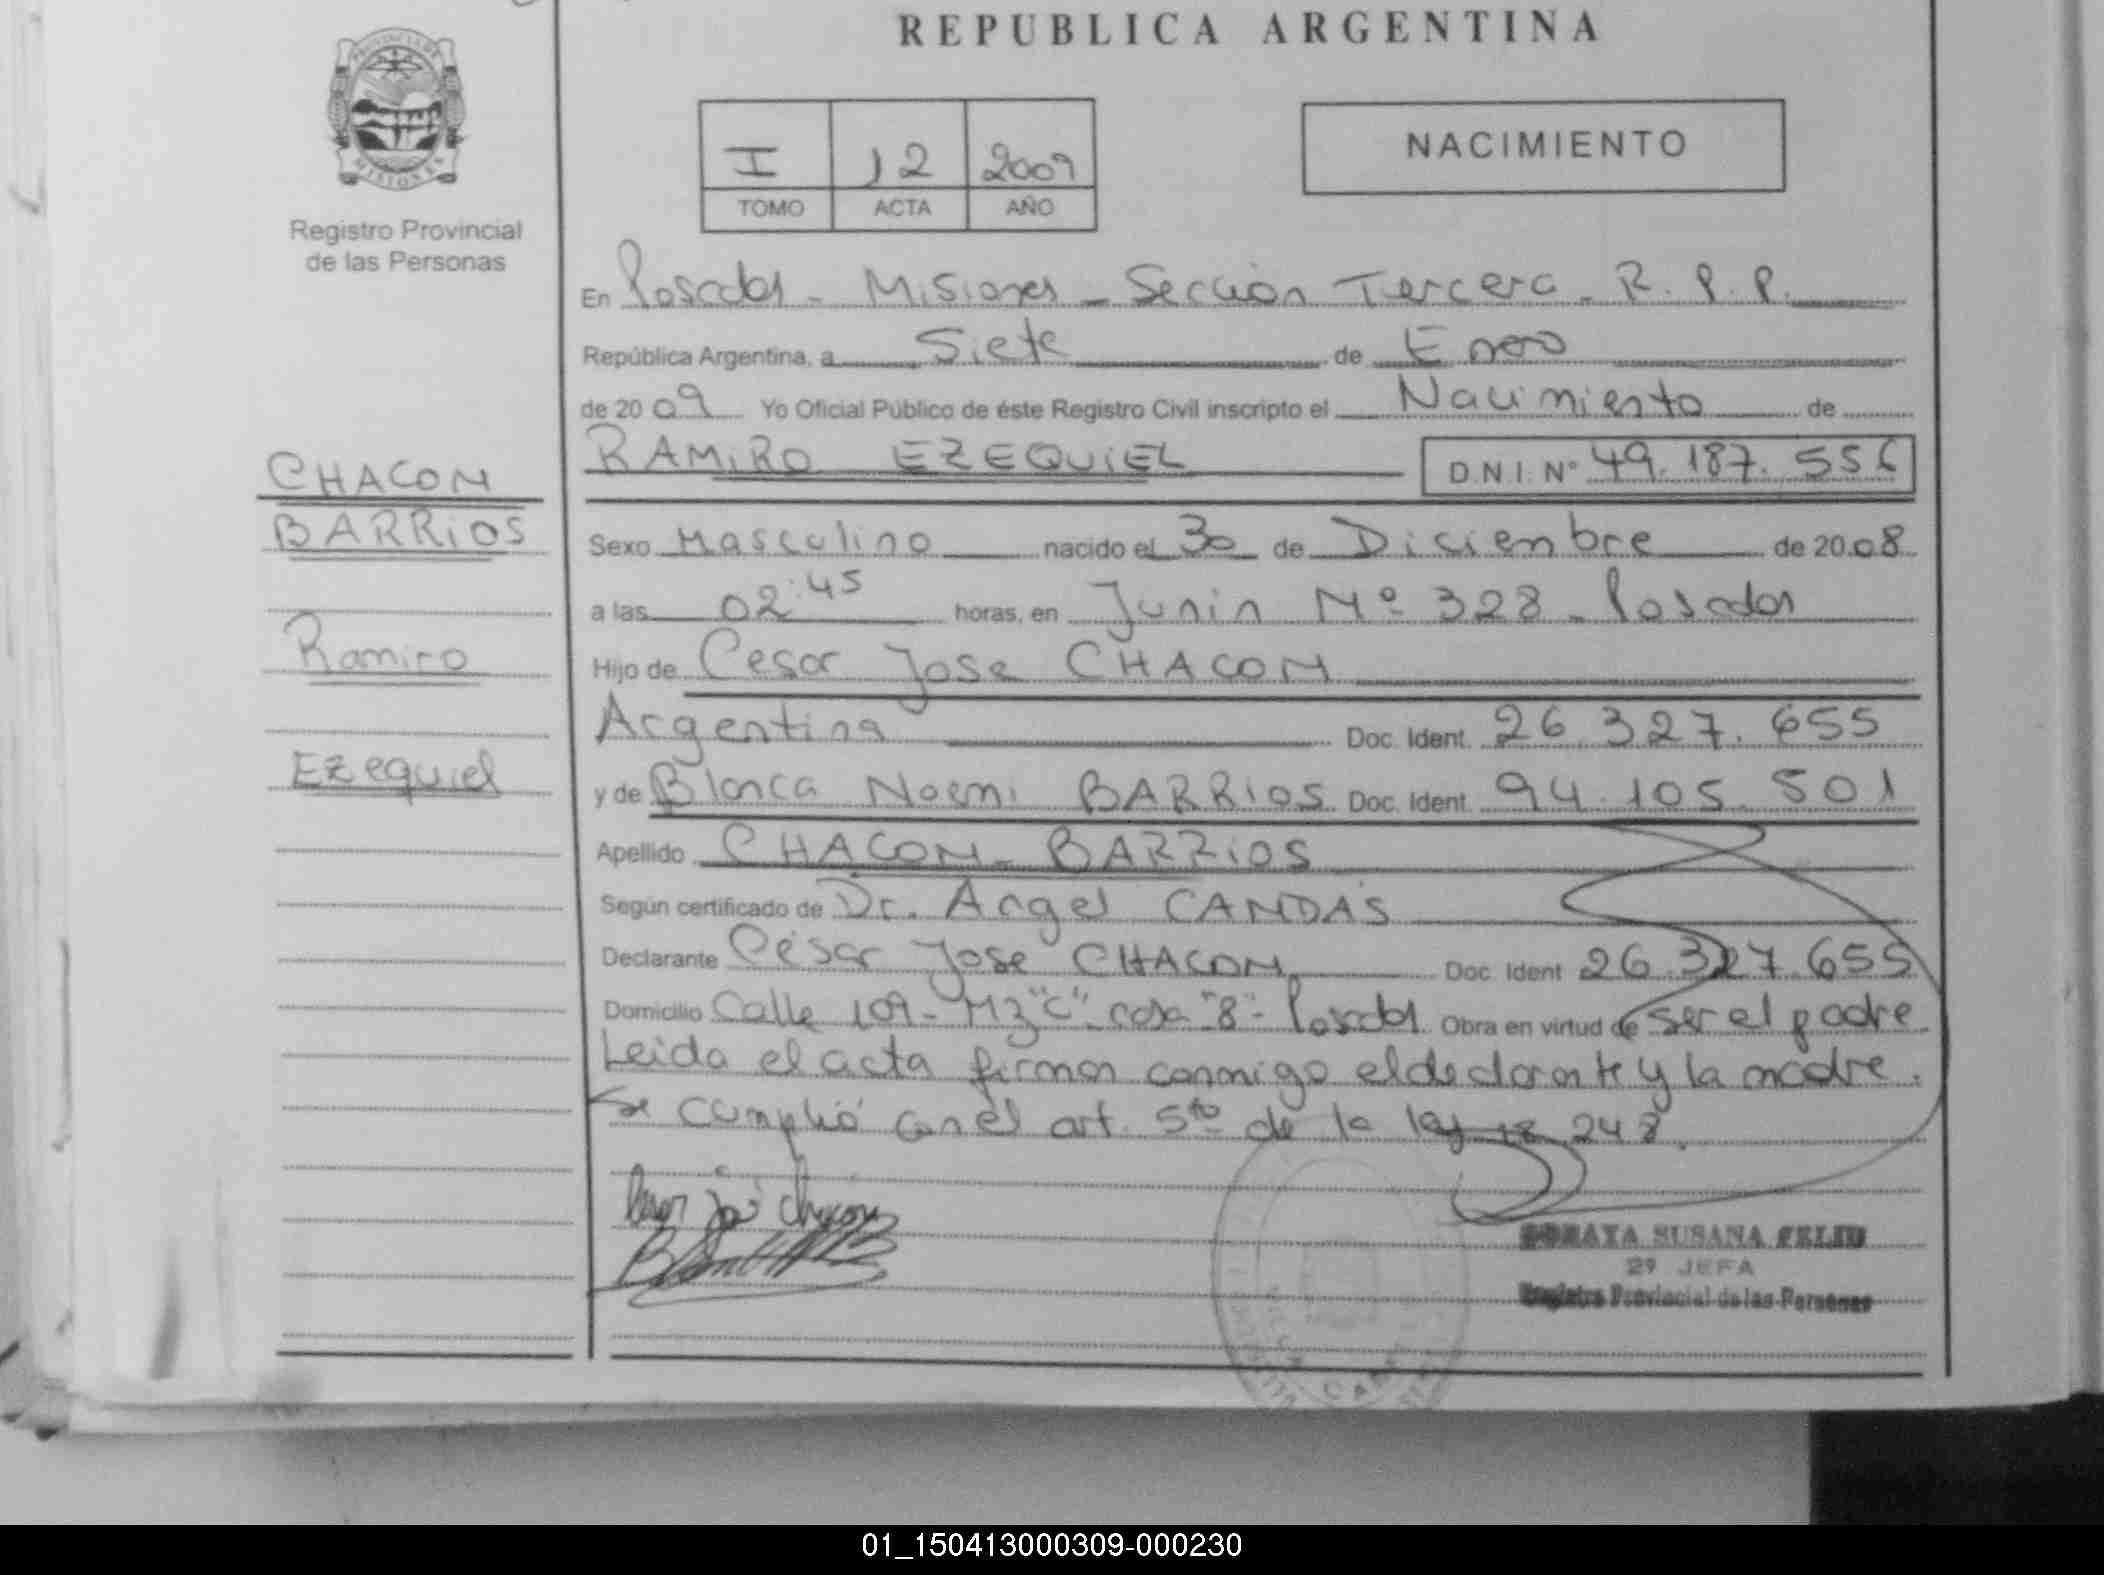 REPUBLICA ARGENTINA
PROVINCIA DE
MISIONES
Registro Provincial
de las Personas
I 12 2009
TOMO ACTA AÑO
NACIMIENTO
En Posadas - Misiones - Sección Tercera - R. P. P.
República Argentina, a Siete de Enero
de 2009 Yo Oficial Público de éste Registro Civil inscripto el Nacimiento de
RAMIRO EZEQUIEL D.N.I. Nº 49.187.556
CHACON
BARRIOS
Ramiro
Ezequiel
Sexo Masculino nacido el 30 de Diciembre de 2008
a las 02:45 horas, en Junin Nº 328 - Posadas
Hijo de Cesar Jose CHACON
Argentina Doc. Ident. 26.327.655
y de Blanca Noemi BARRIOS Doc. Ident. 94.105.501
Apellido CHACON BARRIOS
Según certificado de Dr. Angel CANDAS
Declarante César Jose CHACON Doc. Ident 26.327.655
Domicilio Calle 109 - Mz "C" - casa "8" - Posadas Obra en virtud de ser el padre
Leida el acta firman conmigo el declarante y la madre.
Se cumplió con el art. 5to de la ley 18.248.
Cesar José Chacon
SORAYA SUSANA FELIU
29 JEFA
Registro Provincial de las Personas
01_150413000309-000230